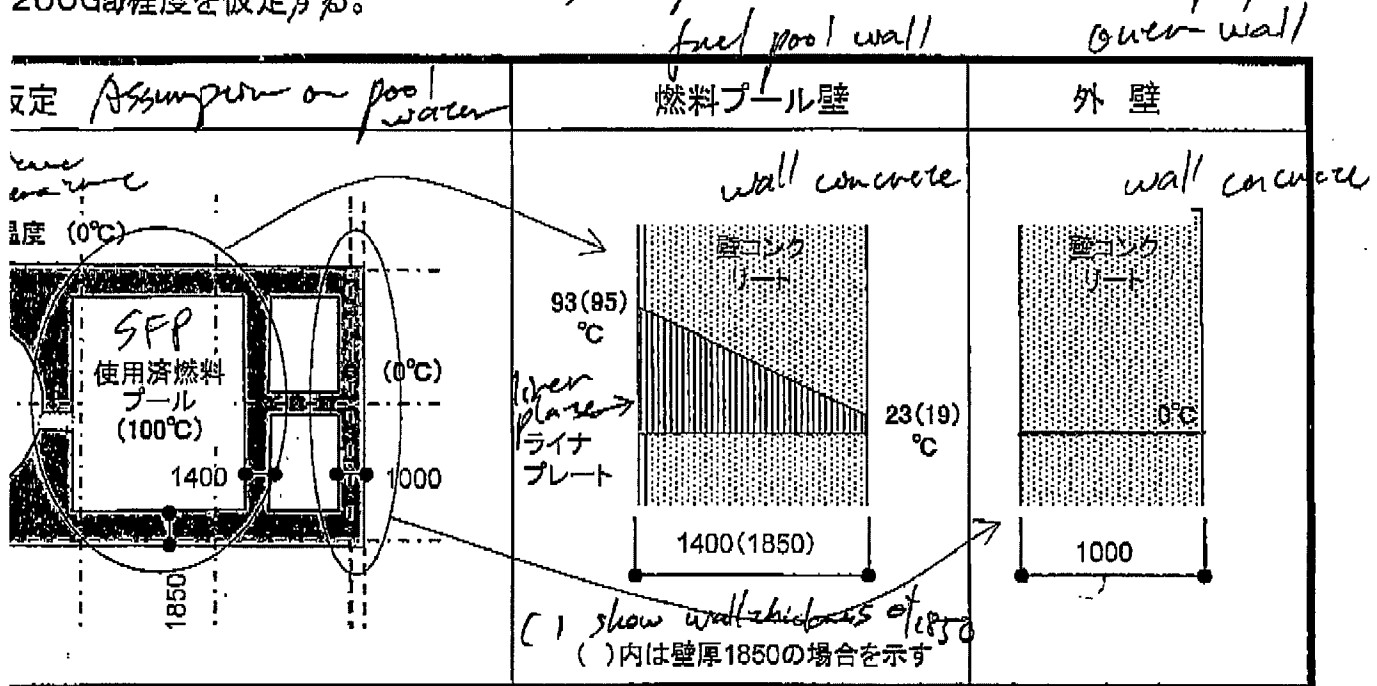 200Gal程度を仮定する。
fuel pool wall
outer wall
仮定 Assumption on pool water
燃料プール壁
外 壁
温度 (0℃)
SFP
使用済燃料
プール
(100℃)
1400
1850
(0℃)
1000
wall concrete
壁コンク
リート
93(95)
℃
liner
plate
ライナ
プレート
23(19)
℃
1400(1850)
( ) show wall thickness of 1850
( )内は壁厚1850の場合を示す
wall concrete
壁コンク
リート
0℃
1000